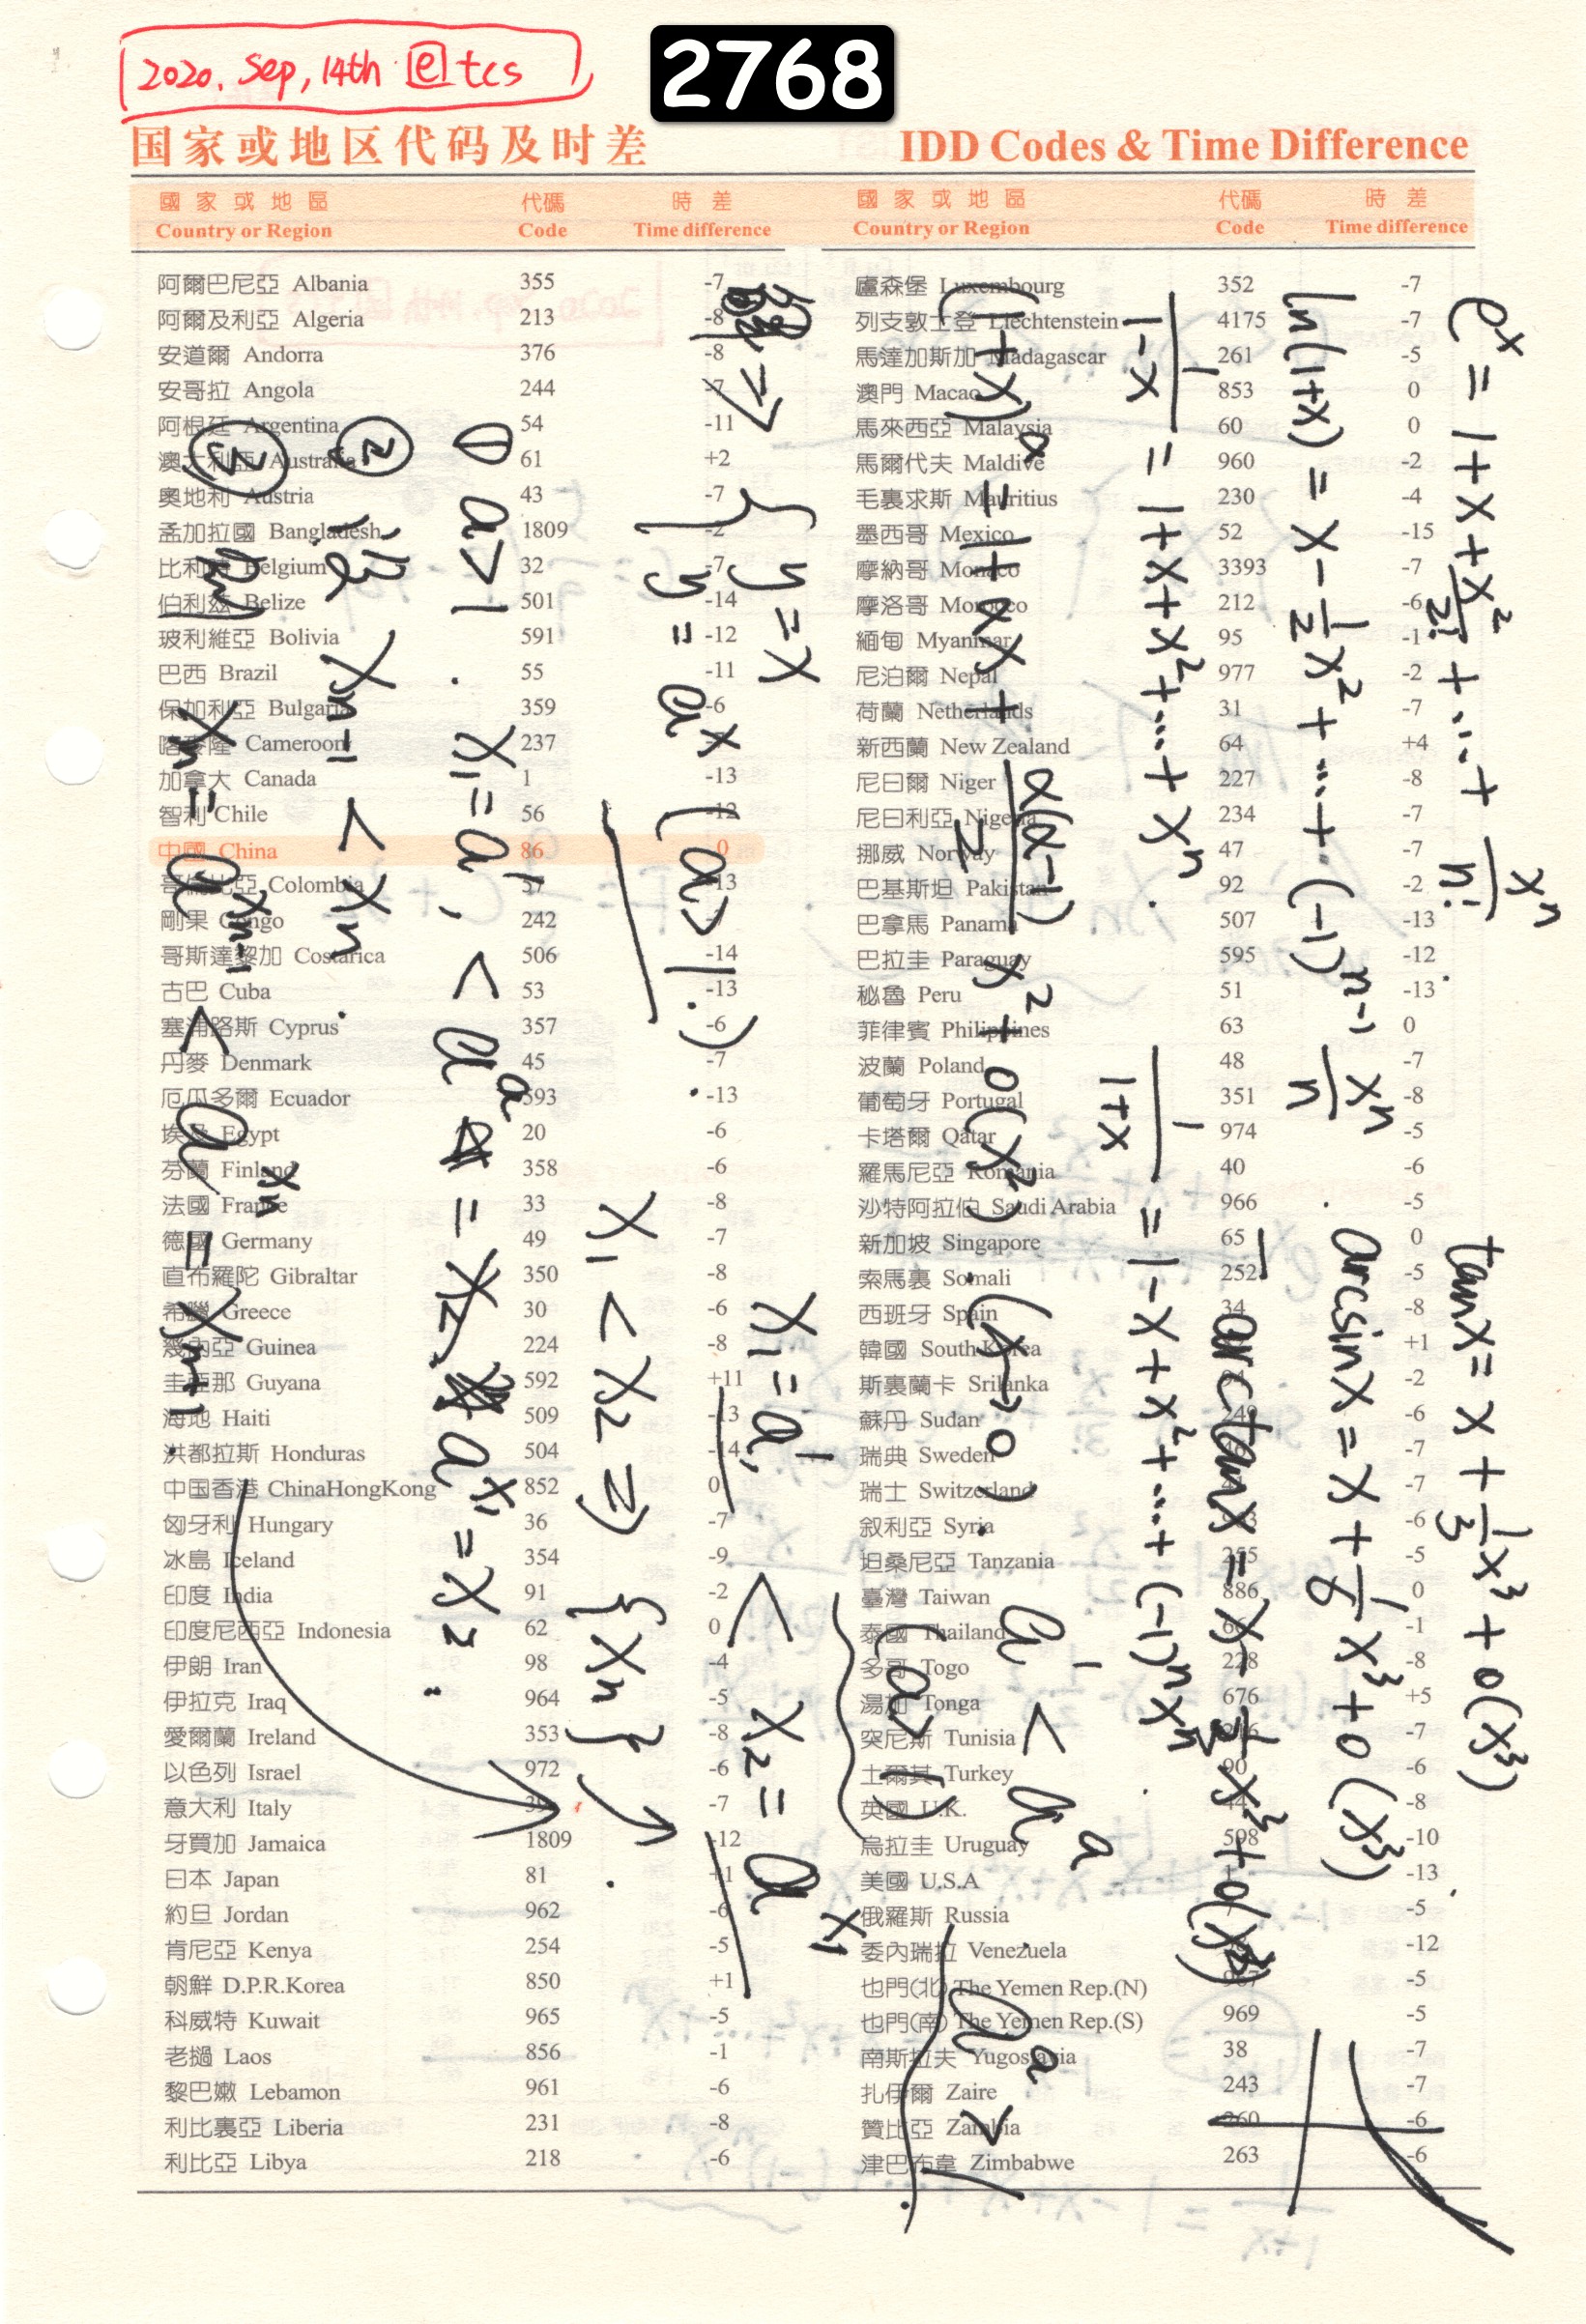 2020. Sep, 14th @tcs
2768
国家或地区代码及时差
IDD Codes & Time Difference
國家或地區 代碼 時差
Country or Region Code Time difference
阿爾巴尼亞 Albania 355 -7
阿爾及利亞 Algeria 213 -8
安道爾 Andorra 376 -8
安哥拉 Angola 244 -7
阿根廷 Argentina 54 -11
澳大利亞 Australia 61 +2
奧地利 Austria 43 -7
孟加拉國 Bangladesh 1809 -2
比利時 Belgium 32 -7
伯利兹 Belize 501 -14
玻利維亞 Bolivia 591 -12
巴西 Brazil 55 -11
保加利亞 Bulgaria 359 -6
喀麥隆 Cameroon 237
加拿大 Canada 1 -13
智利 Chile 56 -12
中國 China 86 0
哥倫比亞 Colombia 57 -13
剛果 Congo 242
哥斯達黎加 Costarica 506 -14
古巴 Cuba 53 -13
塞浦路斯 Cyprus 357 -6
丹麥 Denmark 45 -7
厄瓜多爾 Ecuador 593 -13
埃及 Egypt 20 -6
芬蘭 Finland 358 -6
法國 France 33 -8
德國 Germany 49 -7
直布羅陀 Gibraltar 350 -8
希臘 Greece 30 -6
幾內亞 Guinea 224 -8
圭亞那 Guyana 592 +11
海地 Haiti 509 -13
洪都拉斯 Honduras 504 -14
中国香港 ChinaHongKong 852 0
匈牙利 Hungary 36 -7
冰島 Iceland 354 -9
印度 India 91 -2
印度尼西亞 Indonesia 62 0
伊朗 Iran 98 -4
伊拉克 Iraq 964 -5
愛爾蘭 Ireland 353 -8
以色列 Israel 972 -6
意大利 Italy -7
牙買加 Jamaica 1809 -12
日本 Japan 81 +1
約旦 Jordan 962 -6
肯尼亞 Kenya 254 -5
朝鮮 D.P.R.Korea 850 +1
科威特 Kuwait 965 -5
老撾 Laos 856 -1
黎巴嫩 Lebamon 961 -6
利比裏亞 Liberia 231 -8
利比亞 Libya 218 -6
國家或地區 代碼 時差
Country or Region Code Time difference
盧森堡 Luxembourg 352 -7
列支敦士登 Liechtenstein 4175 -7
馬達加斯加 Madagascar 261 -5
澳門 Macao 853 0
馬來西亞 Malaysia 60 0
馬爾代夫 Maldive 960 -2
毛裏求斯 Mauritius 230 -4
墨西哥 Mexico 52 -15
摩納哥 Monaco 3393 -7
摩洛哥 Morocco 212 -6
緬甸 Myanmar 95 -1
尼泊爾 Nepal 977 -2
荷蘭 Netherlands 31 -7
新西蘭 New Zealand 64 +4
尼日爾 Niger 227 -8
尼日利亞 Nigeria 234 -7
挪威 Norway 47 -7
巴基斯坦 Pakistan 92 -2
巴拿馬 Panama 507 -13
巴拉圭 Paraguay 595 -12
秘魯 Peru 51 -13
菲律賓 Philippines 63 0
波蘭 Poland 48 -7
葡萄牙 Portugal 351 -8
卡塔爾 Qatar 974 -5
羅馬尼亞 Romania 40 -6
沙特阿拉伯 Saudi Arabia 966 -5
新加坡 Singapore 65 0
索馬裏 Somali 252 -5
西班牙 Spain 34 -8
韓國 South Korea +1
斯裏蘭卡 Srilanka -2
蘇丹 Sudan -6
瑞典 Sweden -7
瑞士 Switzerland -7
叙利亞 Syria -6
坦桑尼亞 Tanzania 255 -5
臺灣 Taiwan 886 0
泰國 Thailand -1
多哥 Togo 228 -8
湯加 Tonga 676 +5
突尼斯 Tunisia -7
土爾其 Turkey 90 -6
英國 U.K. 44 -8
烏拉圭 Uruguay 598 -10
美國 U.S.A -13
俄羅斯 Russia -5
委內瑞拉 Venezuela -12
也門(北) The Yemen Rep.(N) 967 -5
也門(南) The Yemen Rep.(S) 969 -5
南斯拉夫 Yugoslavia 38 -7
扎伊爾 Zaire 243 -7
贊比亞 Zambia 260 -6
津巴布韋 Zimbabwe 263 -6
e^x = 1+x+x²/2!+…+x^n/n!
tanx = x+1/3x³+o(x³).
ln(1+x) = x-1/2x²+…+(-1)^(n-1) x^n/n.
arcsinx = x+1/6x³+o(x³)
arctanx = x-1/3x³+o(x³)
1/(1-x) = 1+x+x²+…+x^n.
1/(1+x) = 1-x+x²+…+(-1)^n x^n.
(1+x)^α = 1+αx+α(α-1)/2 x²+o(x²). (x→0).
a^1 < a^a
a^a > 1.
(a>1)
解⇒ { y=x
y=a^x (a>1.).
x₁=a^1, < x₂=a^x₁
① a>1. x₁=a^1, < a^a = x₂, a^x₁=x₂.
x₁<x₂ ⇒ {xn}↗.
② 设 x_(n-1) < x_n.
③ 则 x_n = a^x_(n-1) < a^x_n = x_(n+1).